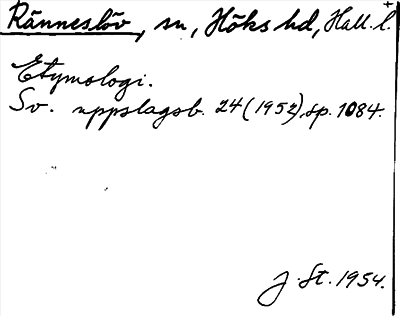 Ränneslöv, sn, Höks hd, Hall. l.
Etymologi.
Sv. uppslagsb. 24 (1952), sp. 1084.
J. St. 1954.